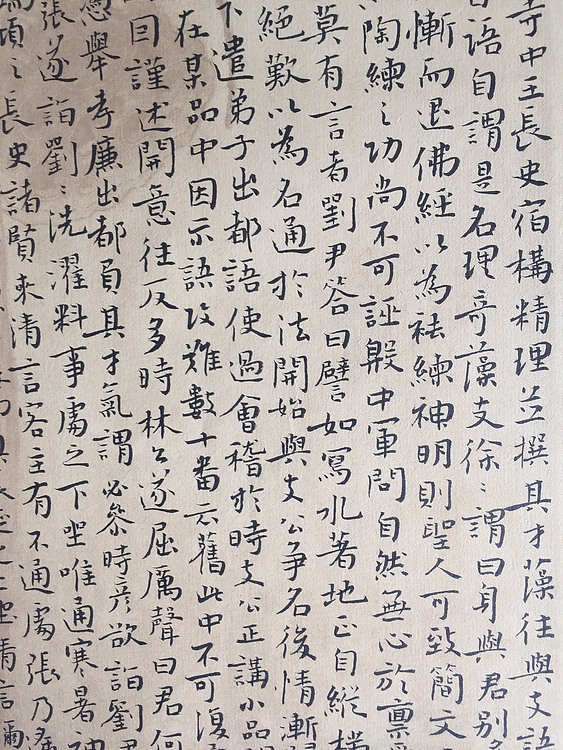 寺中王長史宿構精理並撰其才藻往與支語
語自謂是名理奇藻支徐〻謂曰身與君別
慚而退佛經以為祛練神明則聖人可致簡文
陶練之功尚不可誣殷中軍問自然無心於稟
莫有言者劉尹答曰譬如寫水著地正自縱橫
絕歎以為名通於法開始與支公爭名後情漸
下遣弟子出都語使過會稽於時支公正講小品
在某品中因示語攻難數十番云舊此中不可復
因謹述開意往反多時林公遂屈厲聲曰君何
憑舉孝廉出都負其才氣謂必參時彥欲詣劉尹
張遂詣劉〻洗濯料事處之下坐唯通寒暑神
頃之長史諸賢來清言客主有不通處張乃
坐清言彌